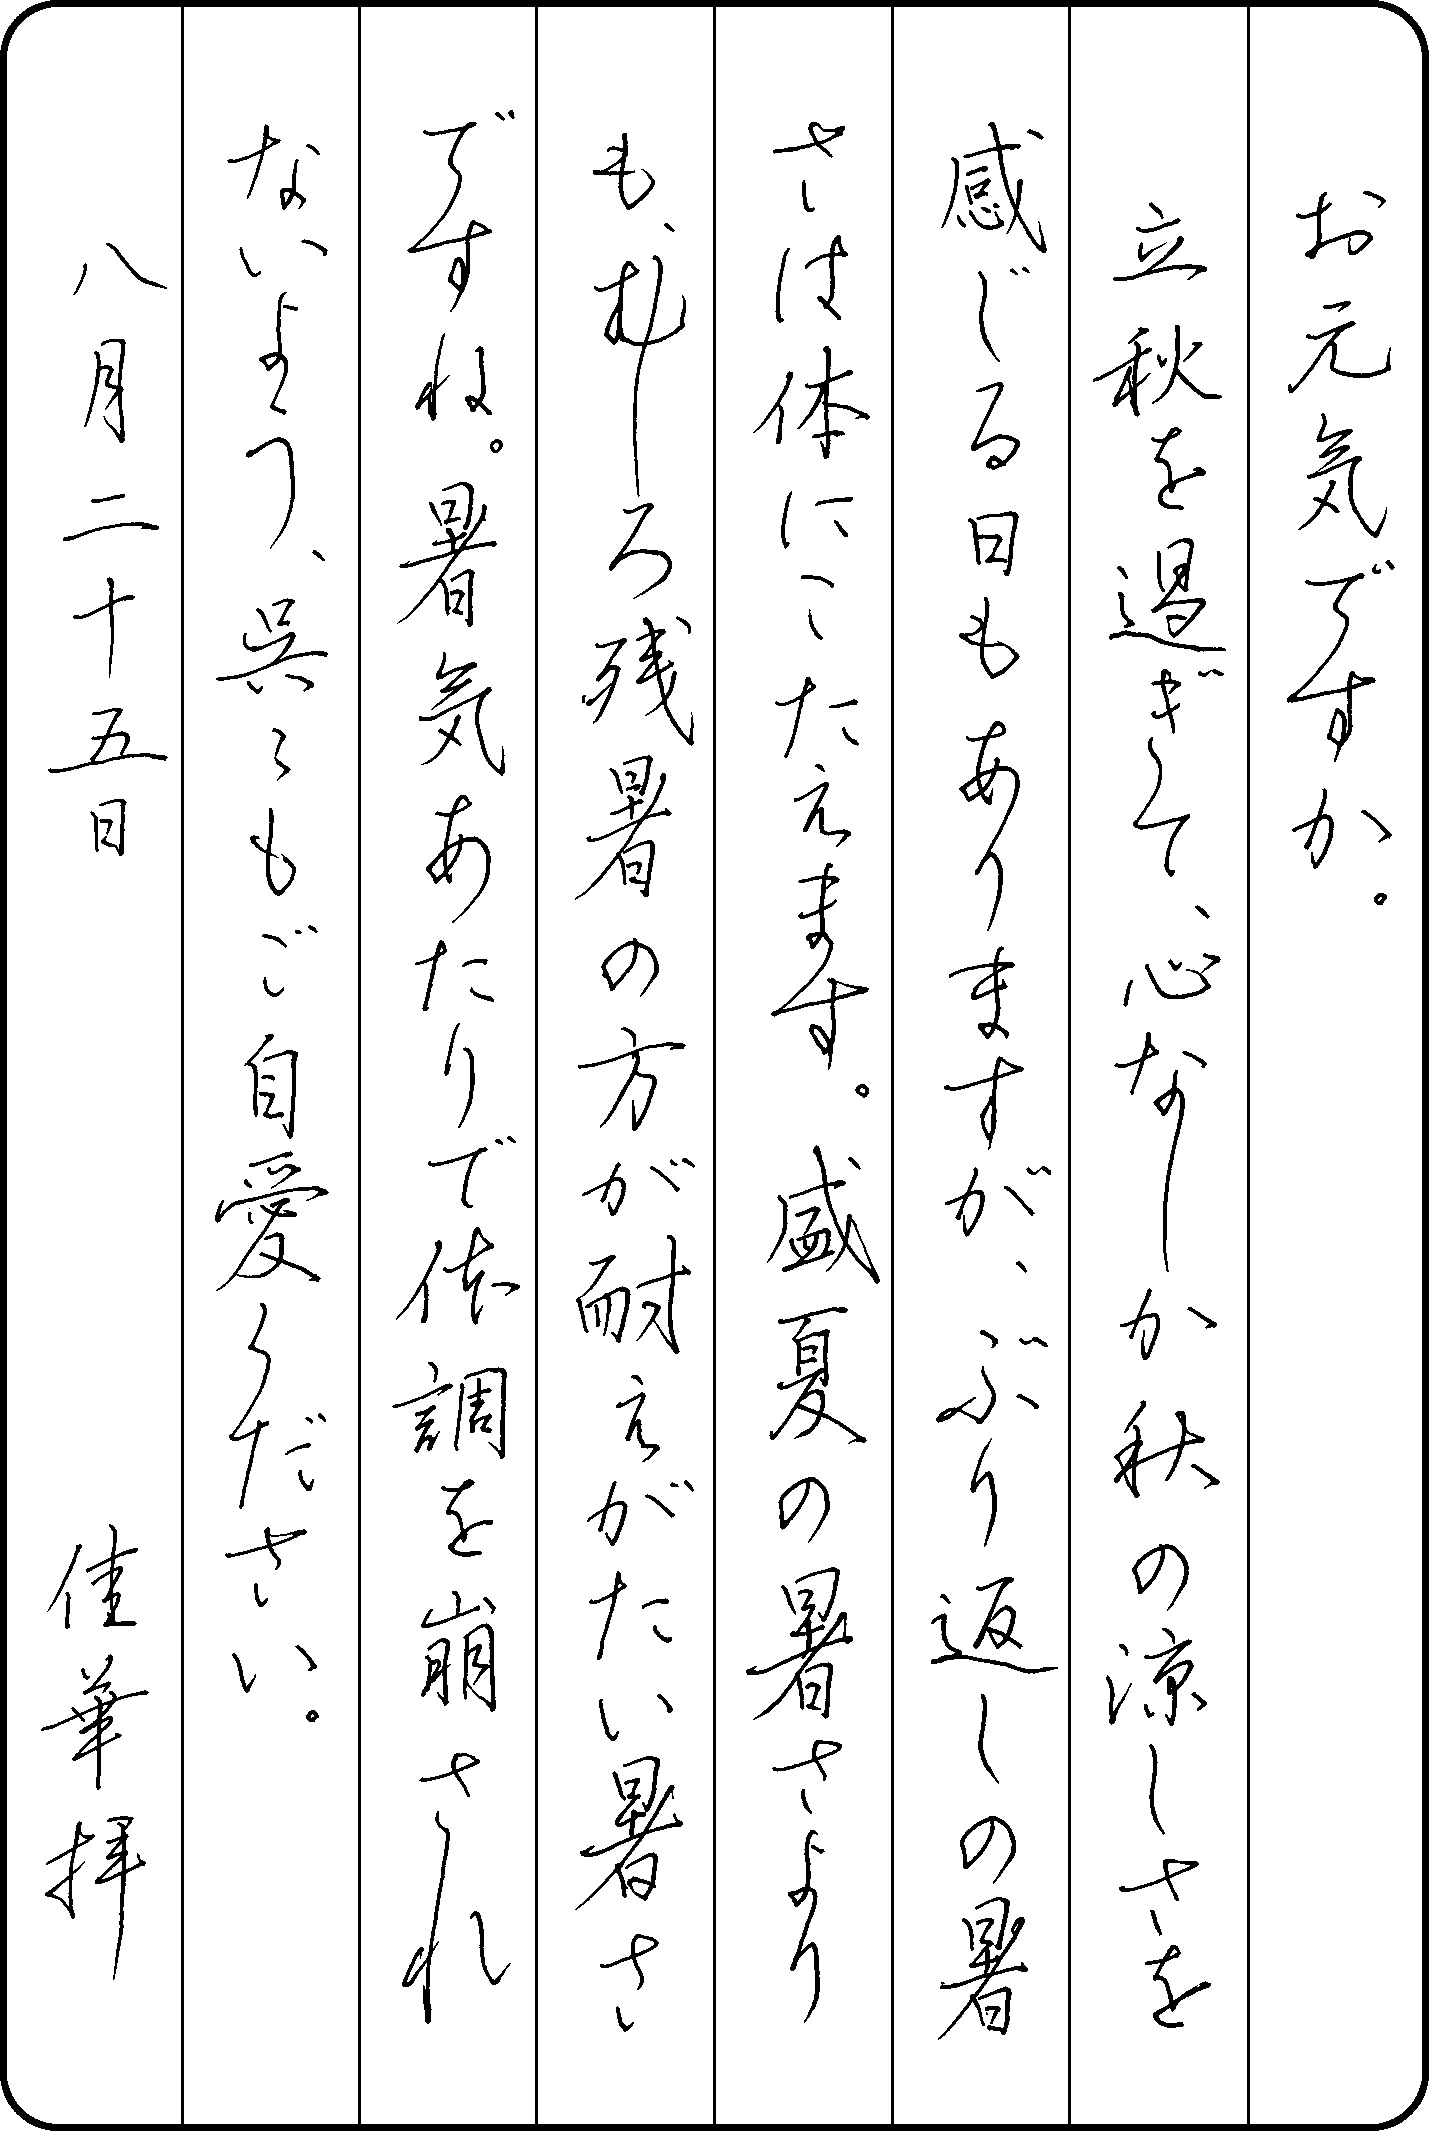 お元気ですか。
立秋を過ぎて、心なしか秋の涼しさを
感じる日もありますが、ぶり返しの暑
さは体にこたえます。盛夏の暑さより
も、むしろ残暑の方が耐えがたい暑さ
ですね。暑気あたりで体調を崩され
ないよう、呉々もご自愛ください。
八月二十五日 佳華拝